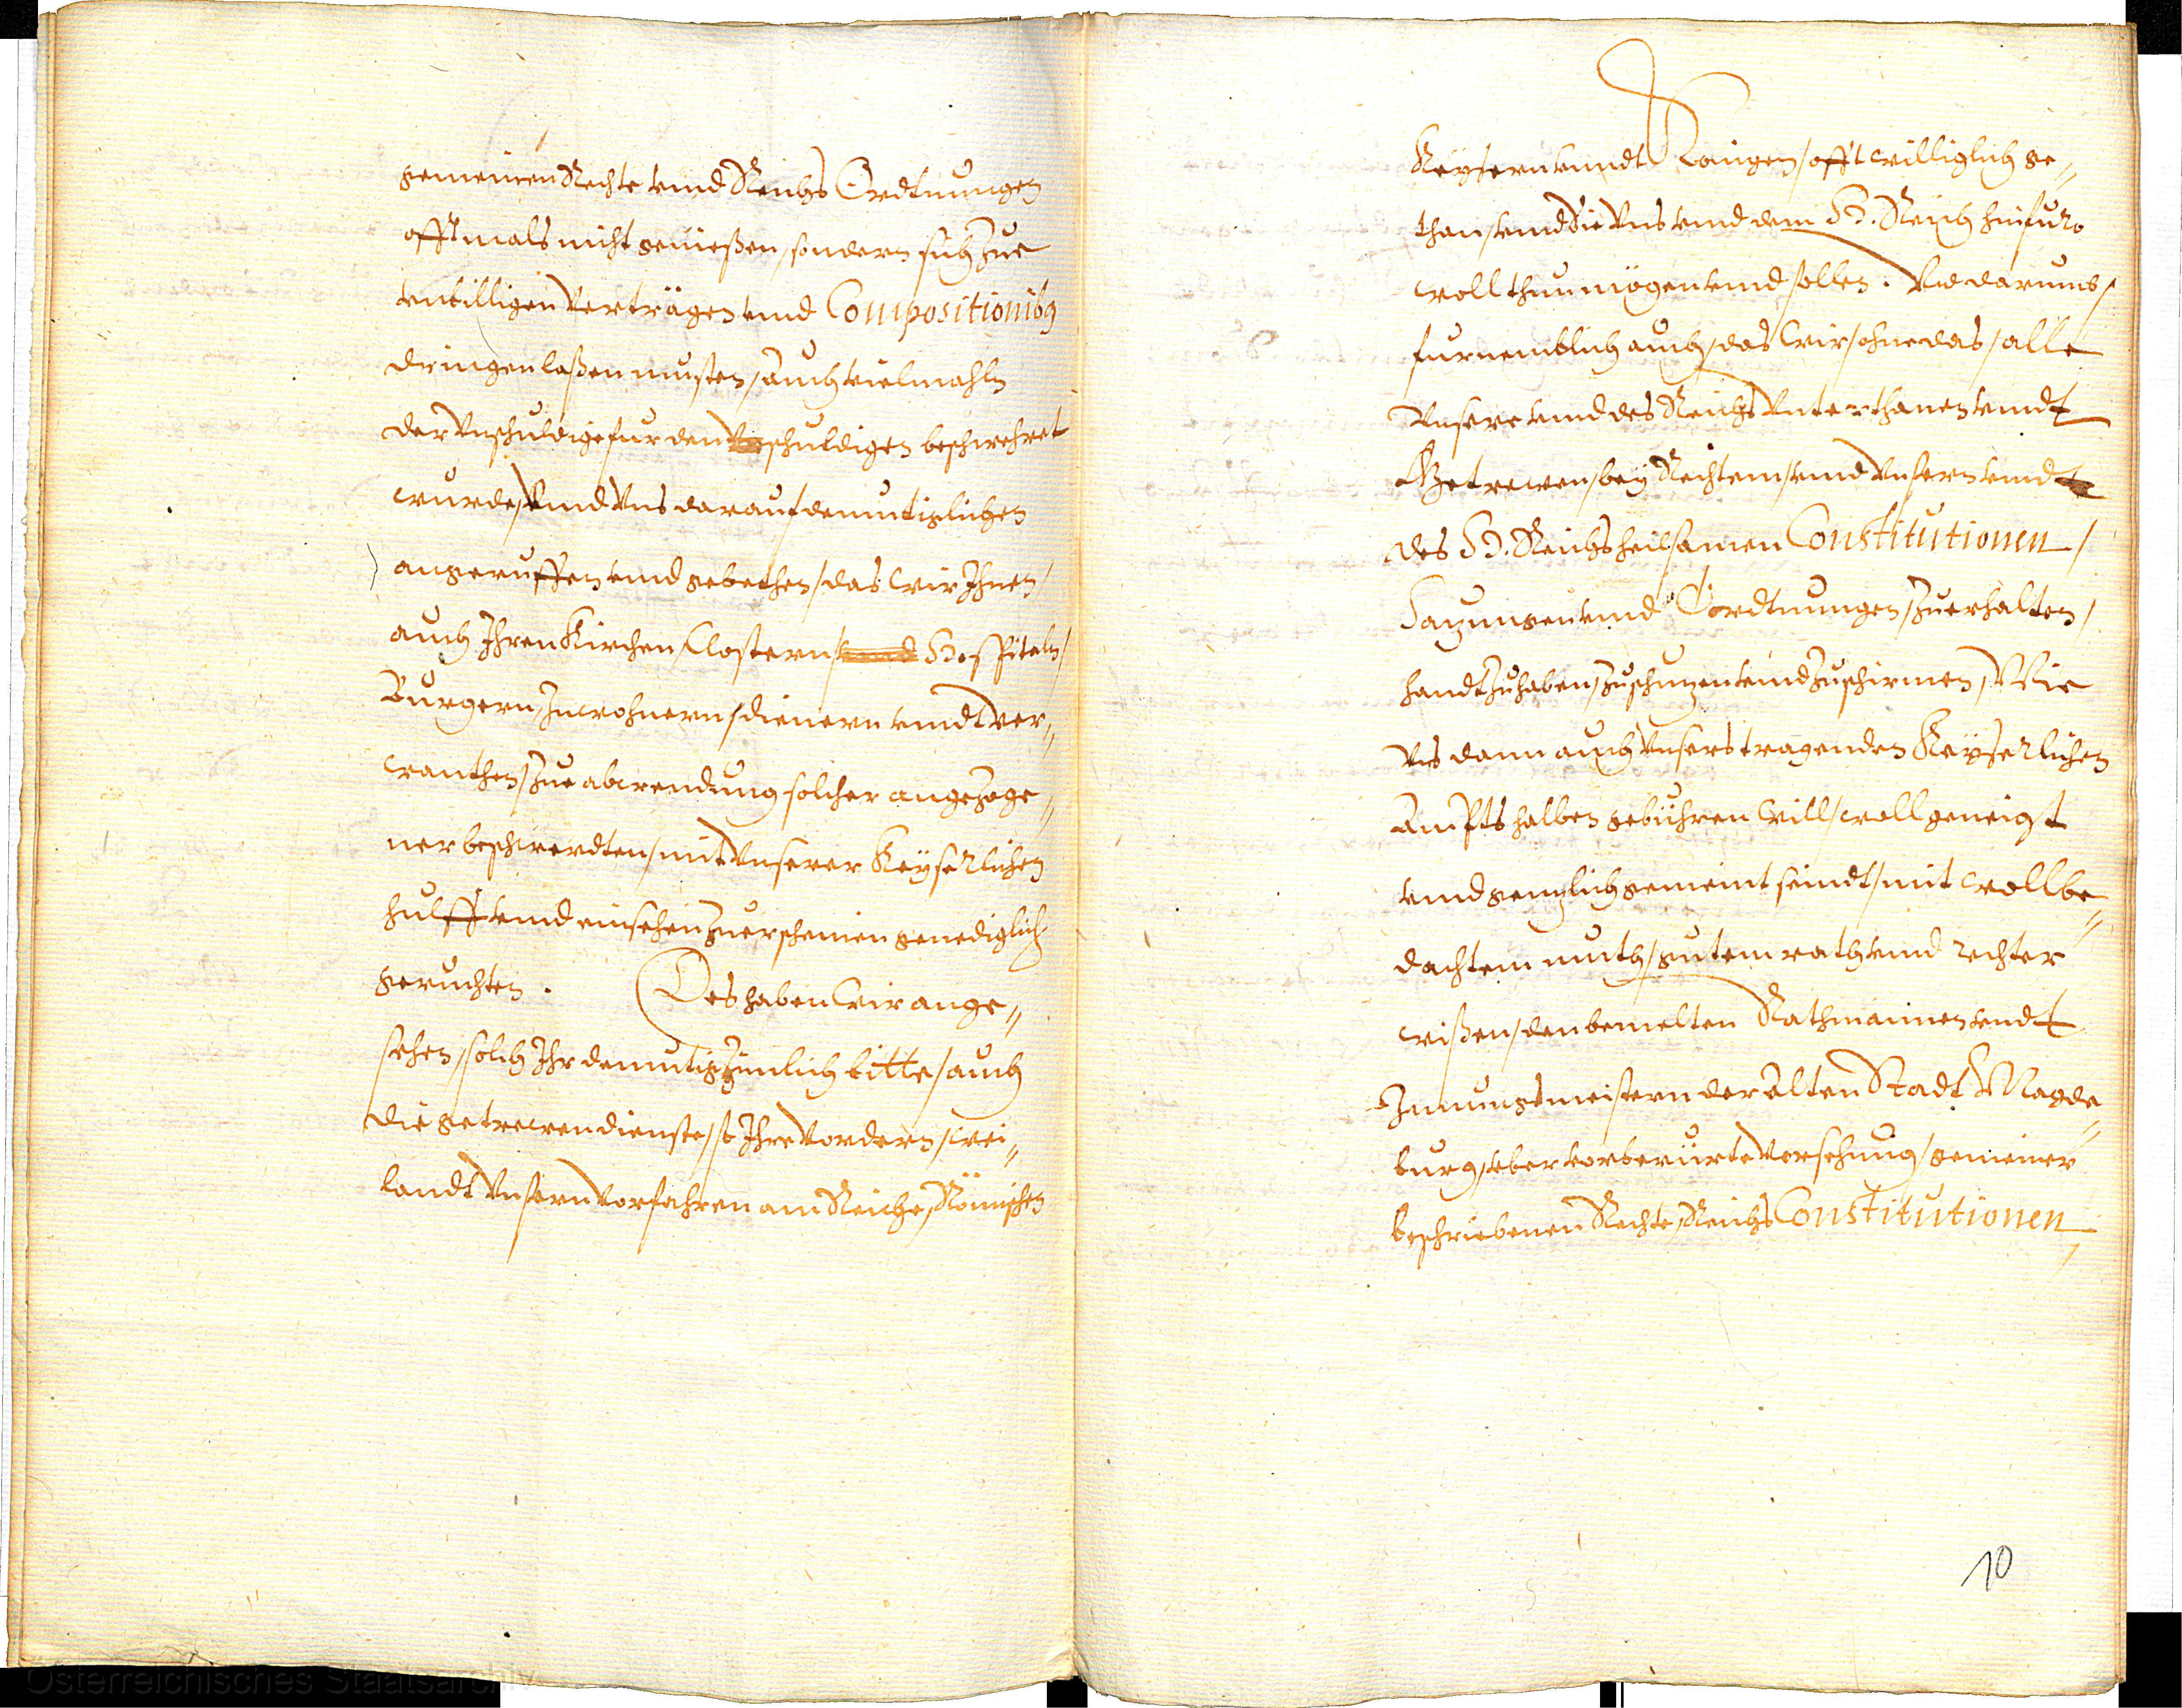 gemeinen Rechte vnnd Reichs Ordtnungen
offtmals nicht genießen, sondern sich zue
vnbilligen Verträgen vnnd Compositionibus
dringen laßen musten, auch vielmahln
der Vnschuldige fur den schuldigen beschwehret
wurde, Vnnd Vns darauf demutiglichen
angeruffen vnnd gebethen, das Wir Ihnen,
auch Ihren Kirchen, Clostern, vnnd Hospitaln,
Burgern, Inwohnern, dienern vnndt ver„
wanthen, zue abwendung solcher angezoge„
ner beschwerdten, mit Vnserer Keyserlichen
hulff vnnd einsehen zuerscheinen genediglich
geruchten. Des haben Wir ange„
sehen, solch Ihr demutig zimlich bitte, auch
die getrewen dienste, so Ihre Vordern, wei„
landt Vnsern Vorfahren am Reiche, Römischen
Keysern vnndt Königen, offt williglich ge„
than, vnnd die Vns vnnd dem H. Reich hinfuro
woll thun mögen vnnd sollen. Vnd darumb,
furnemblich auch, das Wir, ohne das, alle
Vnsere vnnd des Reichs Vnterthanen vnndt
Getrewen, bey Rechtem, vnnd Vnsern vnndt
des H. Reichs heilsamen Constitutionen,
Satzungen vnnd Oordtnungen, zuerhalten,
handtzuhaben, zuschutzen vnnd zuschirmen, Wie
Vns dann auch Vnsers tragenden Keyserlichen
Ampts halben gebühren will, woll geneigt
vnnd gentzlich gemeint seindt, mit wollbe„
dachtem muth, gutem rath vnnd rechter
wißen, den bemelten Rathmannen vndt
Innungsmeistern der Alten Stadt Magde„
burg, vber vorberürte Versehung, gemeiner
beschriebenen Rechte, Reichs Constitutionen,
10
Österreichisches Staatsarchiv